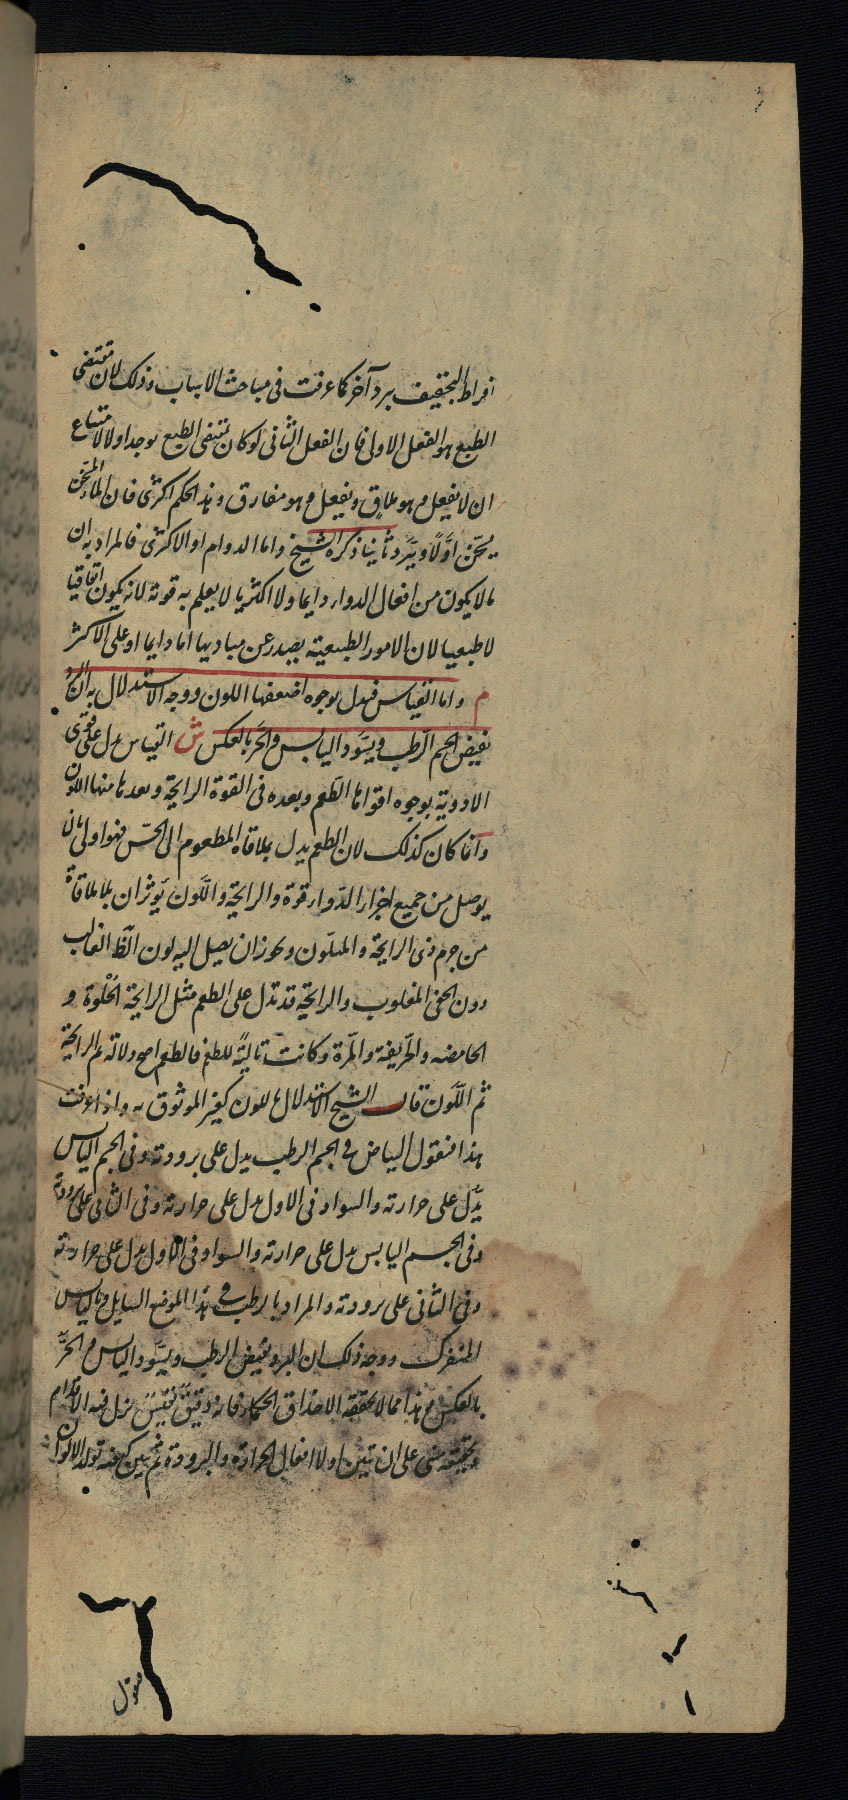 افراط التجفيف يبرد آخر كما عرفت فى مباحث الاسباب وذلك لان مقتضى
الطبع هو الفعل الاول فان الفعل الثانى لو كان مقتضى الطبع لوجد اولا لامتناع
ان لا يفعل وهو ملاق ويفعل وهو مفارق وهذا الحكم اكثرى فان الماء المسخن
يسخن اولًا ويبرد ثانيا ذكره الشيخ واما الدوام او الاكثرى فالمراد به ان
ما لا يكون من افعال الدواء دايما ولا اكثريا لا يعلم به قوته لانه يكون اتفاقيا
لا طبعيا لان الامور الطبيعية يصدر عن مباديها اما دايما او على الاكثر
م واما القياس فيدل بوجوه اضعفها اللون ووجه الاستدلال به ان البرد
يبيض الجسم الرطب ويسود اليابس والحر بالعكس ش القياس يدل على قوى
الادوية بوجوه اقواها الطعم وبعده فى القوة الرايحة وبعدها منها اللون
وانما كان كذلك لان الطعم يدل بملاقاة المطعوم الى الحس فهو اولى بان
يوصل من جميع اجزاء الدواء قوة والرايحة واللون يؤثران بلا ملاقاة
من جرم ذى الرايحة والمتلون ويجوز ان يصل اليه لون الظ الغالب
دون الخفى المغلوب والرايحة قد تدل على الطعم مثل الرايحة الحلوة و
الحامضه والحريفة والمرة وكانت تالية للطعم فالطعم اصح دلالة ثم الرايحة
ثم اللون قال الشيخ الاستدلال باللون كغير الموثوق به واذا عرفت
هذا فنقول البياض فى الجسم الرطب يدل على برودته وفى الجسم اليابس
يدل على حرارته والسواد فى الاول يدل على حرارته وفى الثانى على برودته
وفى الجسم اليابس يدل على حرارته والسواد فى الاول يدل على حرارته
وفى الثانى على برودته والمراد بالرطب فى هذا الموضع السايل وباليابس
المنفرك ووجه ذلك ان البرد يبيض الرطب ويسود اليابس والحر
بالعكس وهذا مما لا يحققه الا حذاق الحكماء فانه دقيق نفيس تزل فيه الاقدام
وتحقيقه مبنى على ان تبين اولا افعال الحرارة والبرودة ثم نبين كيفية تولد الالوان